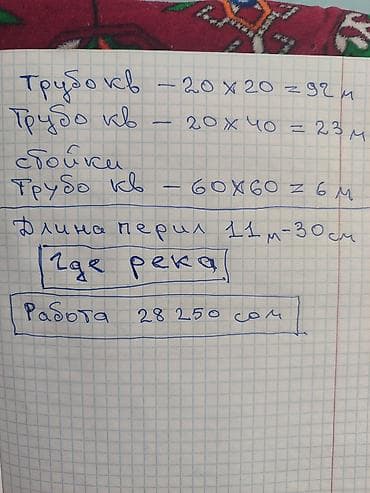 Трубо кв – 20 х 20 = 92 м
Трубо кв – 20 х 40 = 23 м
стойки
Трубо кв – 60х60 = 6 м
Длина перил 11 м – 30 см
Где река
Работа 28 250 сом